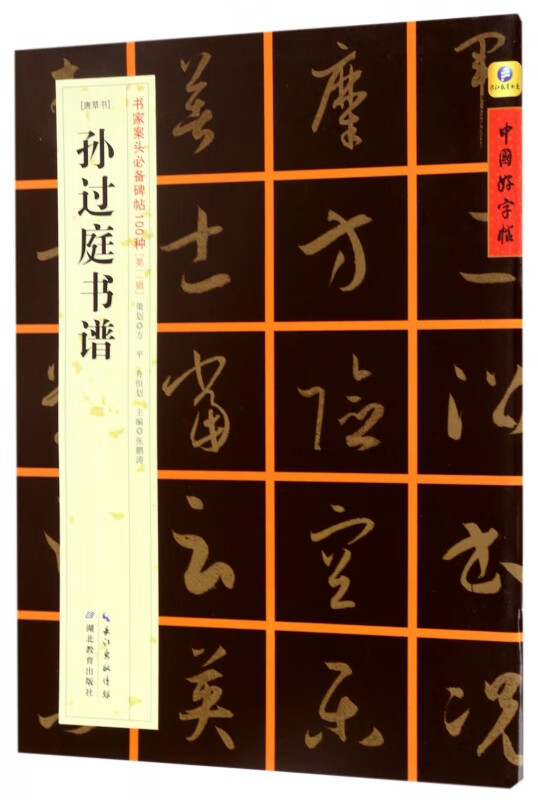 [唐草书]
孙过庭书谱
书家案头必备碑帖100种[第二辑]
策划◎方 平 冉恒划 主编◎张鹏涛
长江出版传媒
湖北教育出版社
中國好字帖
善
糜
士
方
二
当
险
沿
云
空
书
英
乐
况